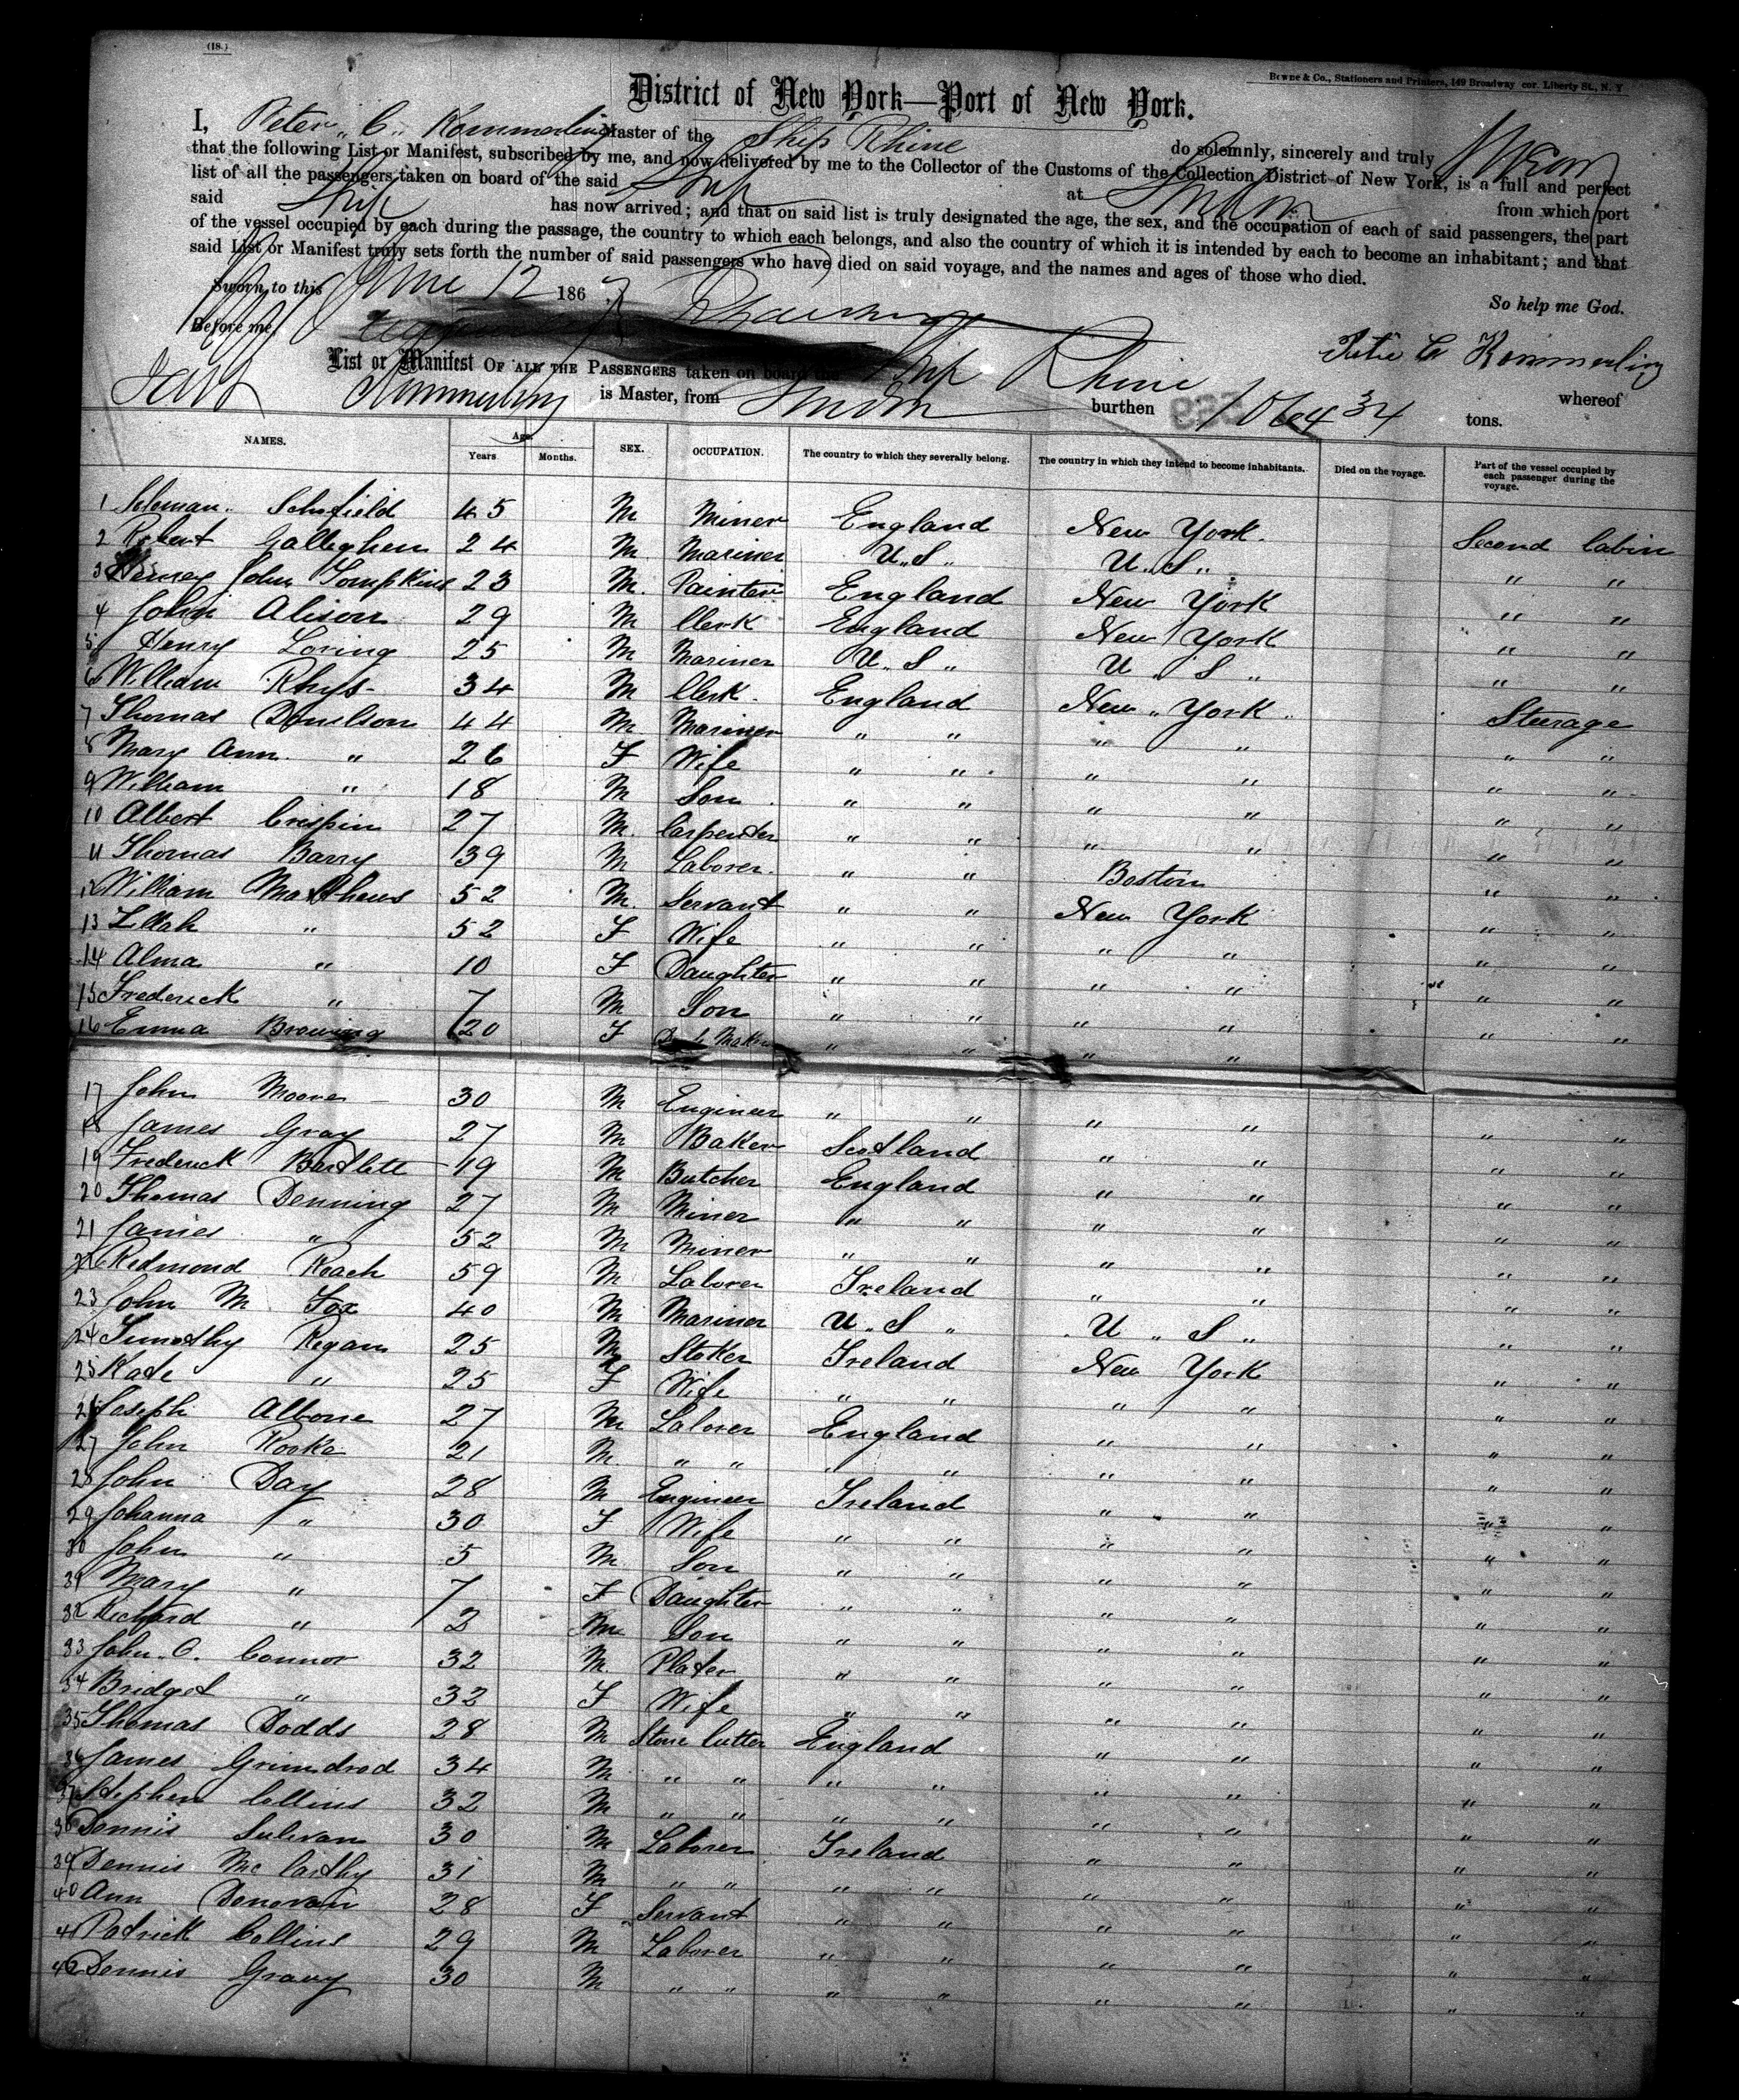 (18.)
Bowne & Co., Stationers and Printers, 149 Broadway cor. Liberty St., N. Y
District of New York—Port of New York.
I, Peter C. Kommerling Master of the Ship Rhine do solemnly, sincerely and truly swear
that the following List or Manifest, subscribed by me, and now delivered by me to the Collector of the Customs of the Collection District of New York, is a full and perfect
list of all the passengers taken on board of the said Ship at London from which port
said Ship has now arrived; and that on said list is truly designated the age, the sex, and the occupation of each of said passengers, the part
of the vessel occupied by each during the passage, the country to which each belongs, and also the country of which it is intended by each to become an inhabitant; and that
said List or Manifest truly sets forth the number of said passengers who have died on said voyage, and the names and ages of those who died.
Sworn to this June 12 186 So help me God.
Before me, Peter C Kommerling
List or Manifest OF ALL THE PASSENGERS taken on board the Ship Rhine whereof
Kommerling is Master, from London burthen 1064 34 tons.
NAMES. Age. Years Months. SEX. OCCUPATION. The country to which they severally belong. The country in which they intend to become inhabitants. Died on the voyage. Part of the vessel occupied by each passenger during the voyage.
1 Schofield 45 M Miner England New York Second Cabin
2 Robert Galleghen 24 M Mariner U.S. U.S. " "
3 John Tompkins 23 M. Painter England New York " "
4 John Alison 29 M Clerk England New York " "
5 Henry Loring 25 M Mariner U.S. U.S. " "
6 William Rhys 34 M Clerk England New York Steerage
7 Thomas Donelson 44 M Mariner " " " " " "
8 Mary Ann " 26 F Wife " " " " " "
9 William " 18 M Son " " " " " "
10 Albert Crispin 27 M. Carpenter " " " " " "
11 Thomas Barry 39 M Laborer " " Boston " "
12 William Matthews 52 M. Servant " " New York " "
13 " 52 F Wife " " " " " "
14 Alma " 10 F Daughter " " " " " "
15 Frederick " 7 M Son " " " " " "
16 Emma Browning 20 F Maker " " " " " "
17 John Moore 30 M Engineer " " " " " "
18 James Gray 27 M Baker Scotland " " " "
19 Frederick Bartlett 19 M Butcher England " " " "
20 Thomas Denning 27 M Miner " " " " " "
21 James " 52 M Miner " " " " " "
22 Redmond Roach 59 M Laborer Ireland " " " "
23 John M Fox 40 M Mariner U.S. U.S. " "
24 Timothy Regan 25 M Stoker Ireland New York " "
25 Kate " 25 F Wife " " " " " "
26 Joseph Albone 27 M Laborer England " " " "
27 John Rooke 21 M. " " " " " " " "
28 John Day 28 M Engineer Ireland " " " "
29 Johanna " 30 F Wife " " " " " "
30 John " 5 M Son " " " " " "
31 Mary " 7 F Daughter " " " " " "
32 Richard " 2 M Son " " " " " "
33 John O. Connor 32 M. Plater " " " " " "
34 Bridget " 32 F Wife " " " " " "
35 Thomas Dodds 28 M Stone Cutter England " " " "
36 James Grimdrod 34 M " " " " " " " "
37 Stephen Collins 32 M " " " " " " " "
38 Dennis Sulivan 30 M Laborer Ireland " " " "
39 Dennis McCarthy 31 M " " " " " " " "
40 Ann Donovan 28 F Servant " " " " " "
41 Patrick Collins 29 M Laborer " " " " " "
42 Dennis Gravy 30 M " " " " " " " "